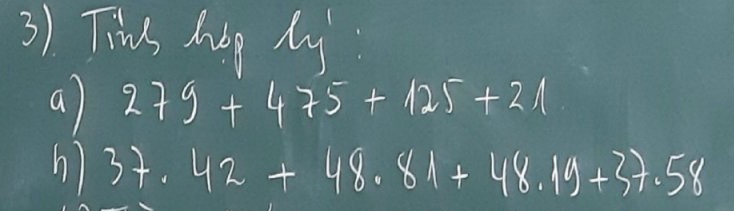 3) Tính hợp lý:
a) 279 + 475 + 125 + 21
b) 37.42 + 48.81 + 48.19 + 37.58